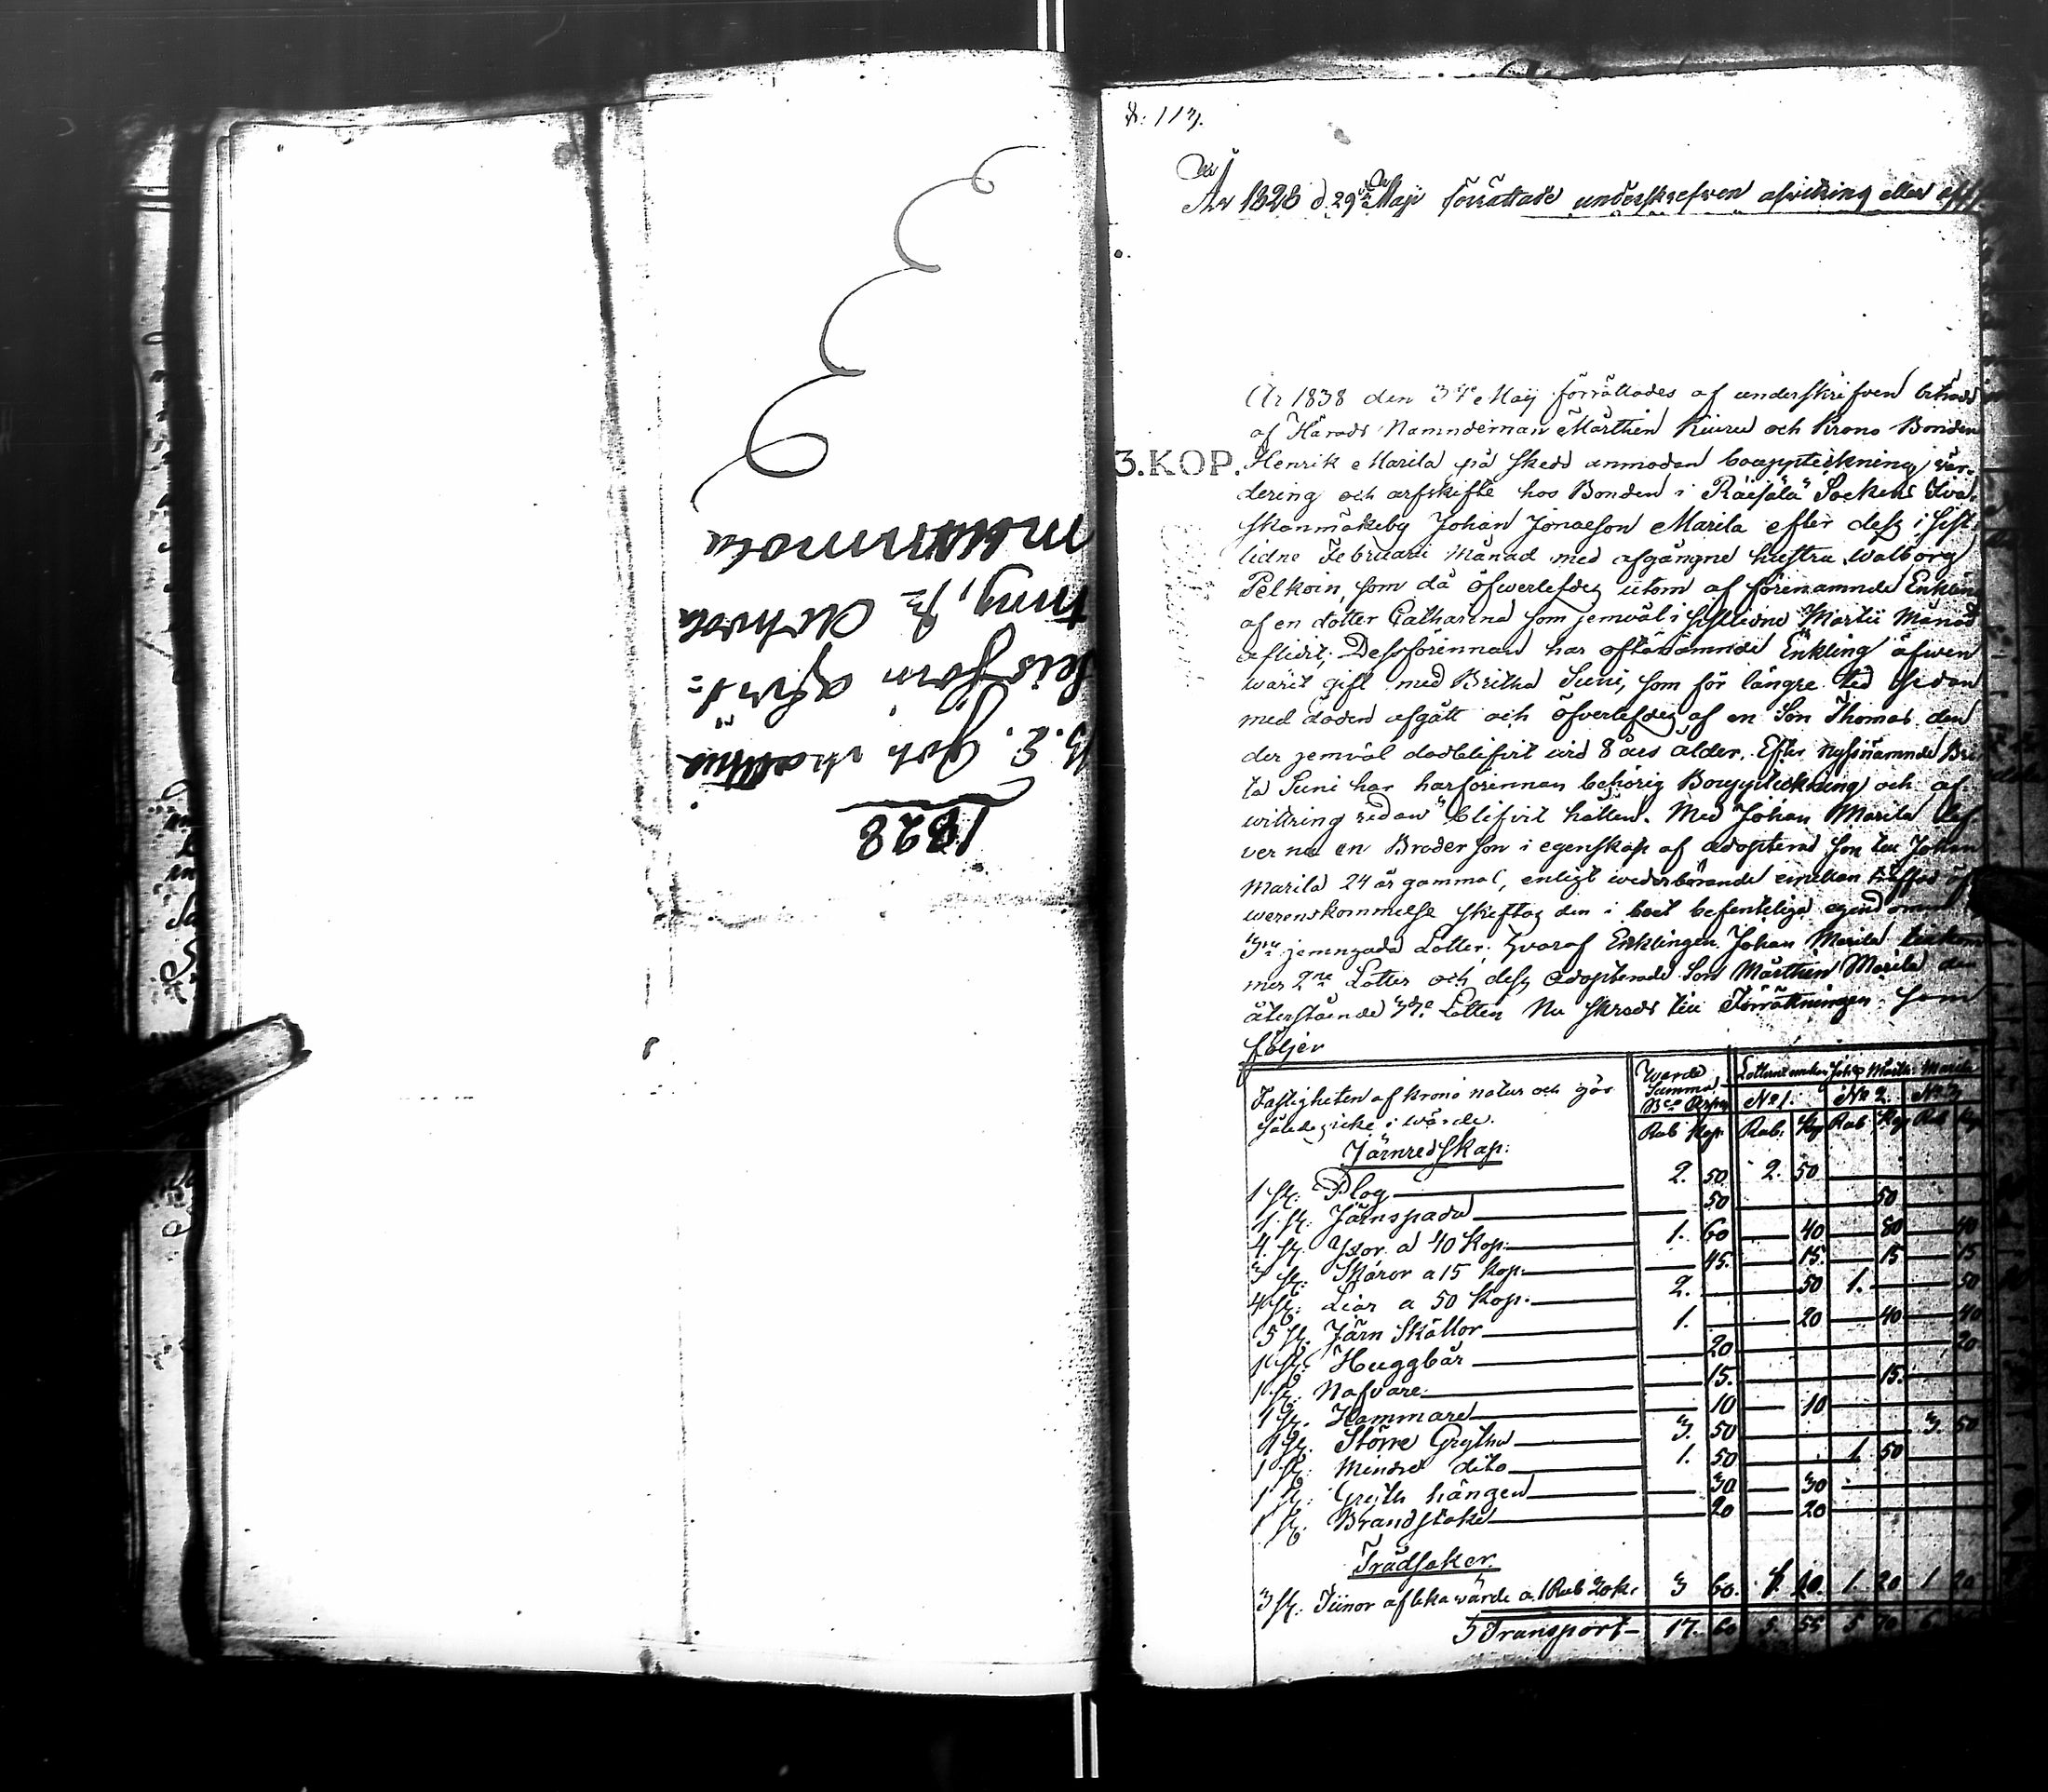 1828
B. E. Joh
mannola
N: 113.
År 1828 d 29de Maji förrättade underskrefven afvitring eller
År 1838 den 3die Maij förrättades af underskrifven biträdd
af Härads Nämndeman Mårthen Kiuru och Krono Bonden
3.KOP.
Henrik Marila på skedd anmodan bouppteckning, vär-
dering och arfskifte hos Bonden i Räisälä Sockens Iva-
skanmäkeby Johan Jonaeson Marila efter dess i sist-
lidne Februarii Månad med afgångne hustru Walborg
Pelkoin, som då öfwerlefdes utom af förenämnde Enkling
af en dotter Catharina som jemväl i sistledne Martii Månad
aflidit; Dessförinnan har oftanämnde Enkling äfwen
warit gift med Britha Suni, som för längre tid sedan
med döden afgått och öfverlefdes af en Son Thomas den
der jemväl dödblifvit vid 8 års ålder. Efter nyssnämnde Bri-
ta Suni har härförinnan behörig Bouppteckning och af-
wittring redan blifvit hållen. Med Johan Marila lef-
ver nu en Broder son i egenskap af adopterad son till Johan
Marila 24 år gammal, enligt wederbörande emellan träffad öf-
werenskommelse skiftas den i boet befinteliga egendomen i
3ne jemngoda Lotter; hvaraf Enklingen Johan Marila tillkom-
mer 2ne Lotter och dess adopterade Son Mårthen Marila den
återstående 3die Lotten Nu skreds till Förrättningen som
följer
Fastigheten af krono natur och går
således icke i wärde.
Wärde Summa Bco Assign
Rub Kop
Lotterne emellan Joh. o Mårth: Marila
No 1. No 2. No 3
Rub. Kop Rub Kop Rub Kop
Järnredskap:
1 st: Plog 2. 50 2. 50
1 st. Järnspada 50 50
4. st. Yxor a 40 Kop. 1. 60 40 80 40
3 st: Skäror a 15 Kop. 45. 15. 15 15
4 st: Liar a 50 Kop. 2. 50 1. 50
5 st. Järn Skällor 1. 20 40 40
1 st: Huggbär 20 20
1 st: Nafvare 15. 15.
1 st. Hammare 10 10
1 st. Större Grytha 3. 50 3. 50
1 st. Mindre dito 1. 50 1. 50
1 st: Gryth hängen 30 30
1 st. Brandstake 20 20
Trädsaker.
3 st: Tiinor af lika wärde a 1 Rub 20 k. 3 60. 1. 20. 1. 20 1 20
Transport 17. 60 5. 55 5 70 6